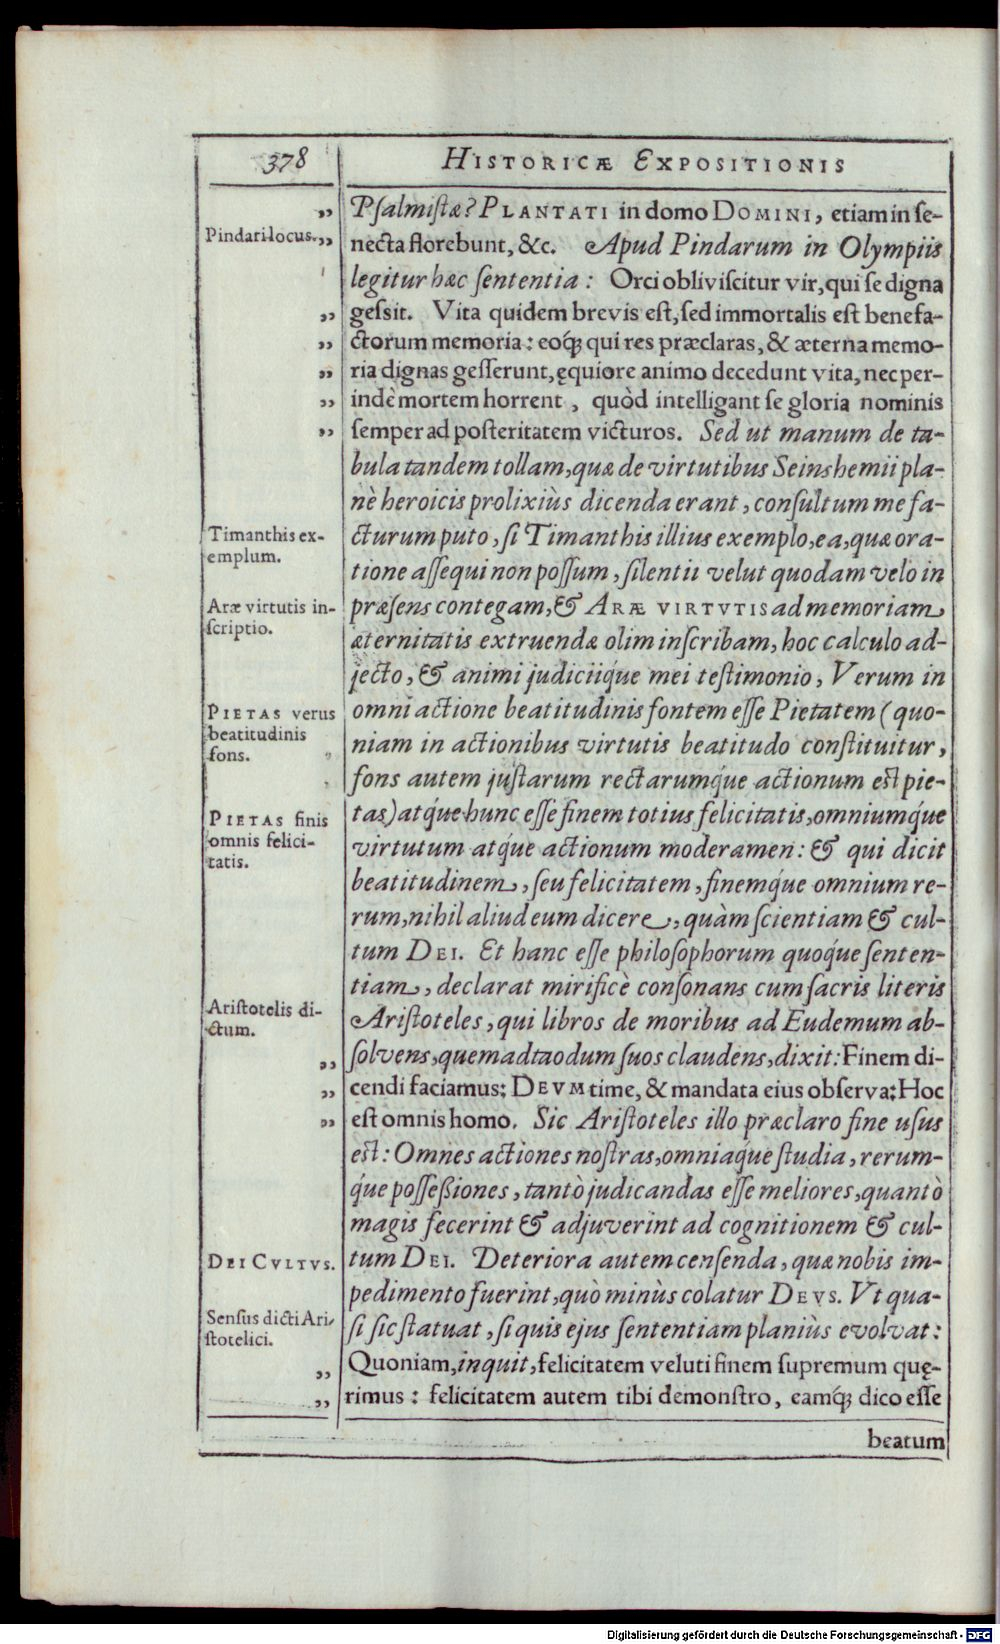 378
HISTORICÆ EXPOSITIONIS
„ Psalmistæ? PLANTATI in domo DOMINI, etiam in se-
Pindari locus. „ necta florebunt, &c. Apud Pindarum in Olympiis
legitur hæc sententia: Orci obliviscitur vir, qui se digna
„ gessit. Vita quidem brevis est, sed immortalis est benefa-
„ ctorum memoria: eoq́; qui res præclaras, & æterna memo-
„ ria dignas gesserunt, ęquiore animo decedunt vita, nec per-
„ indè mortem horrent, quòd intelligant se gloria nominis
„ semper ad posteritatem victuros. Sed ut manum de ta-
bula tandem tollam, quæ de virtutibus Seinshemii pla-
nè heroicis prolixiùs dicenda erant, consultum me fa-
Timanthis ex-
emplum.
cturum puto, si Timanthis illius exemplo, ea, quæ ora-
tione assequi non possum, silentii velut quodam velo in
Aræ virtutis in-
scriptio.
præsens contegam, & ARÆ VIRTVTIS ad memoriam
æternitatis extruendæ olim inscribam, hoc calculo ad-
jecto, & animi judiciiq́ue mei testimonio, Verum in
PIETAS verus
beatitudinis
fons.
omni actione beatitudinis fontem esse Pietatem (quo-
niam in actionibus virtutis beatitudo constituitur,
fons autem justarum rectarumq́ue actionum est pie-
PIETAS finis
omnis felici-
tatis.
tas) atq́ue hunc esse finem totius felicitatis, omniumq́ue
virtutum atq́ue actionum moderamen: & qui dicit
beatitudinem, seu felicitatem, finemq́ue omnium re-
rum, nihil aliud eum dicere, quàm scientiam & cul-
tum DEI. Et hanc esse philosophorum quoq́ue senten-
tiam, declarat mirificè consonans cum sacris literis
Aristotelis di-
ctum.
Aristoteles, qui libros de moribus ad Eudemum ab-
„ solvens, quemadtaodum suos claudens, dixit: Finem di-
„ cendi faciamus: DEVM time, & mandata eius observa: Hoc
„ est omnis homo. Sic Aristoteles illo præclaro fine usus
est: Omnes actiones nostras, omniaq́ue studia, rerum-
q́ue possessiones, tantò judicandas esse meliores, quantò
magis fecerint & adjuverint ad cognitionem & cul-
DEI CVLTVS. tum DEI. Deteriora autem censenda, quæ nobis im-
pedimento fuerint, quò minùs colatur DEVS. Vt qua-
Sensus dicti Ari-
stotelici.
si sic statuat, si quis ejus sententiam planiùs evolvat:
„ Quoniam, inquit, felicitatem veluti finem supremum quę-
„ rimus: felicitatem autem tibi demonstro, eamq́; dico esse
beatum
Digitalisierung gefördert durch die Deutsche Forschungsgemeinschaft - DFG